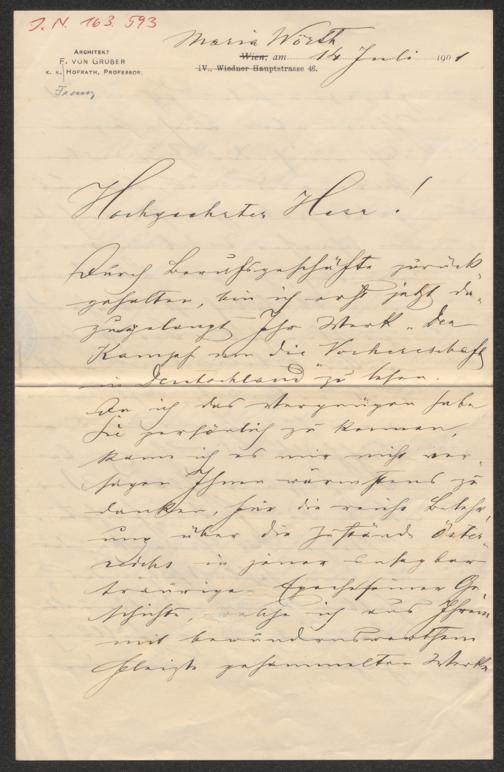 I. N. 163.593
Maria Wörth
ARCHITEKT
F. VON GRUBER
K. K. HOFRATH, PROFESSOR.
Franz
Wien, am 14 Juli 1901
IV., Wiedner Hauptstrasse 46.
Hochgeehrter Herr!
Durch Berufsgeschäfte zurück
gehalten, bin ich erst jetzt da-
zugelangt Ihr Werk „Der
Kampf um die Vorherrschaft
in Deutschland" zu lesen.
Da ich das Vergnügen habe
Sie persönlich zu kennen,
kann ich es mir nicht ver-
sagen Ihnen wärmstens zu
danken, für die reiche Belehr-
ung über die Zustände Öster-
reichs in jener
traurigen Epoche seiner Ge-
schichte, welche ich aus Ihrem
mit bewundernswerthem
Fleiße gesammelten Werke